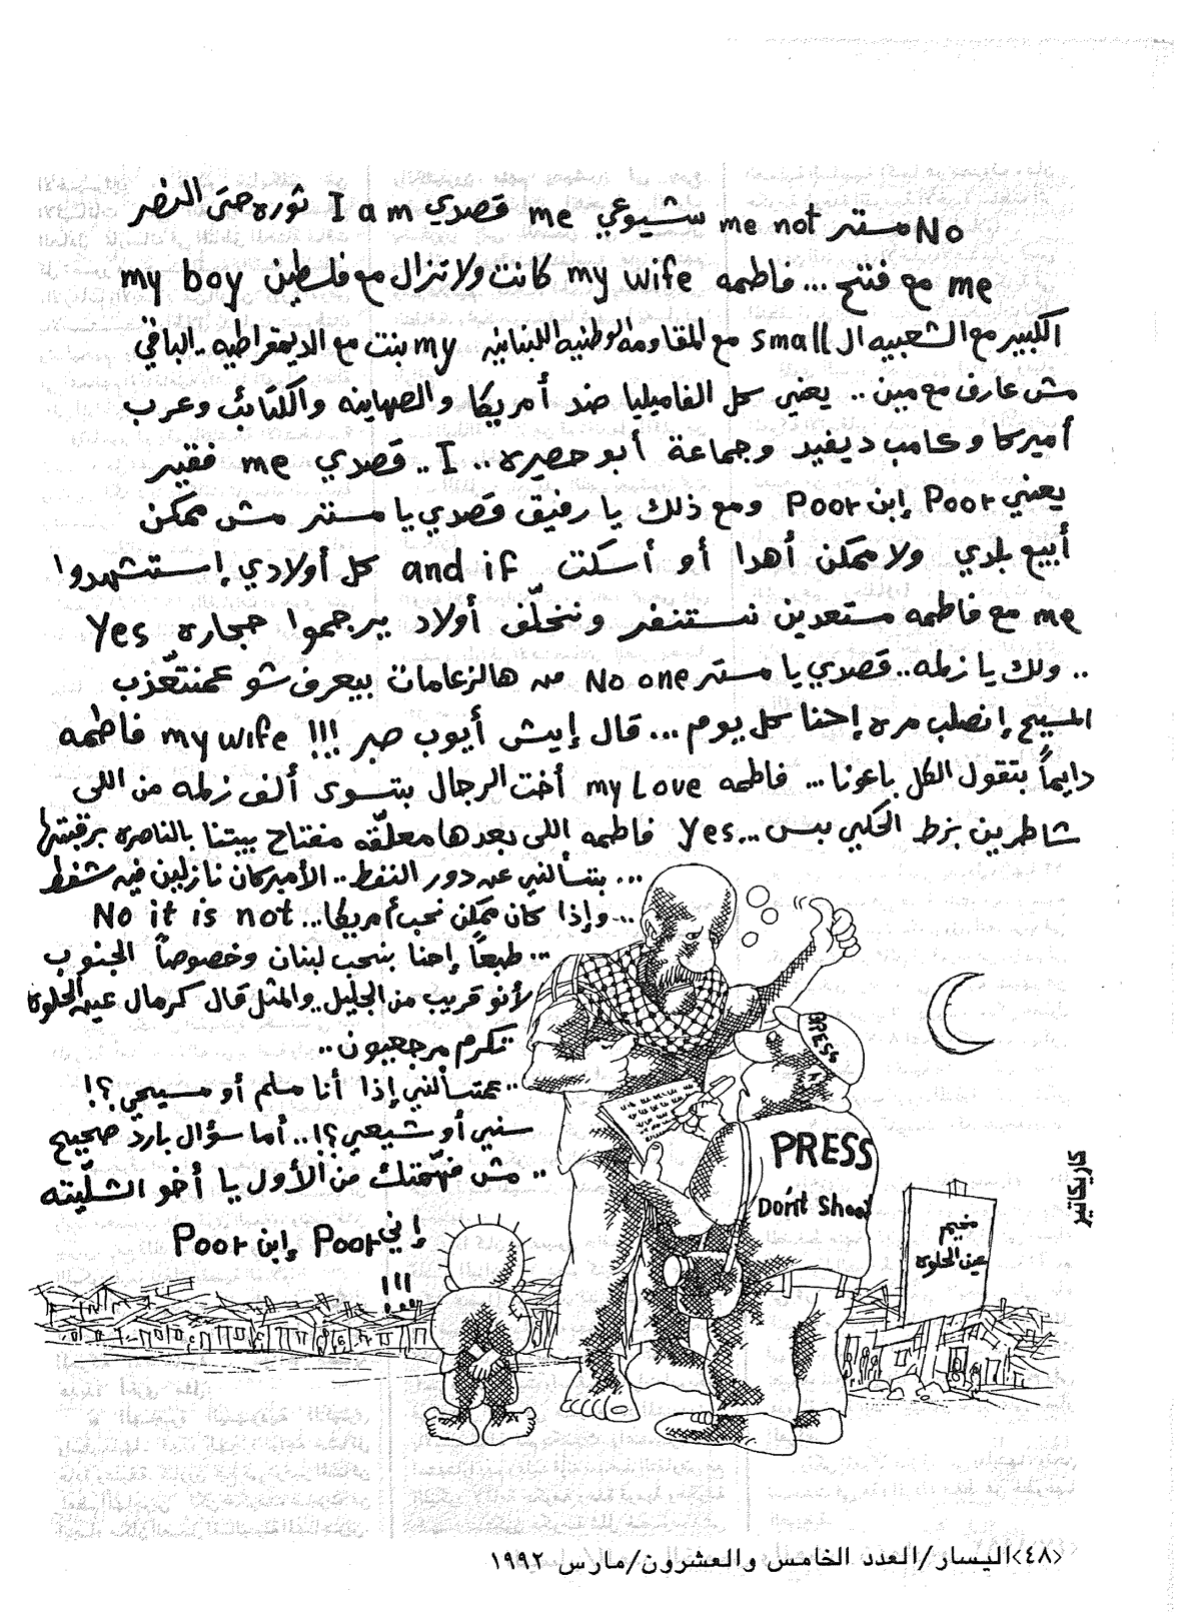 No مستر me not شيوعي me قصدي I am ثوره حتى النصر
me مع فتح ... فاطمه my wife كانت ولا تزال مع فلسطين my boy
الكبير مع الشعبيه ال small مع المقاومه الوطنيه اللبنانيه my بنت مع الديمقراطيه .. الباقي
مش عارف مع مين .. يعني كل الفاميليا ضد أمريكا والصهاينه والكتائب وعرب
أميركا وكامب ديفيد وجماعة أبو حصيره .. I .. قصدي me فقير
يعني Poor إبن Poor ومع ذلك يا رفيق قصدي يا مستر مش ممكن
أبيع بلدي ولا ممكن أهدا أو أسكت and if كل أولادي إستشهدوا
me مع فاطمه مستعدين نستنفر ونخلّف أولاد يرجموا حجاره Yes
.. ولك يا زلمه .. قصدي يا مستر No one من هالزعامات بيعرف شو عمنتعّذب
المسيح إنصلب مره إحنا كل يوم ... قال إيش أيوب صبر !!! my wife فاطمه
دايماً بتقول الكل باعونا ... فاطمه my Love أخت الرجال بتسوى ألف زلمه من اللي
شاطرين بزط الحكي بس ... Yes فاطمه اللي بعدها معلّقه مفتاح بيتنا بالناصره برقبتها
... بتسألني عن دور النفط .. الأميركان نازلين فيه شفط
... وإذا كان ممكن نحب أمريكا ... No it is not
... طبعاً إحنا بنحب لبنان وخصوصاً الجنوب
لأنو قريب من الجليل .. والمثل قال كرمال عين الحلوه
تكرم مرجعيون ..
.. عمتسألني إذا أنا مسلم أو مسيحي ؟!
سني أو شيعي ؟! .. أما سؤال بارد صحيح
.. مش فهّمتك من الأول يا أخو الشلّيته
إني Poor إبن Poor
!!!
PRESS
PRESS
Don't Shoot
مخيم
عين الحلوه
كاريكاتير
<٤٨> اليسار/العدد الخامس والعشرون/مارس ١٩٩٢